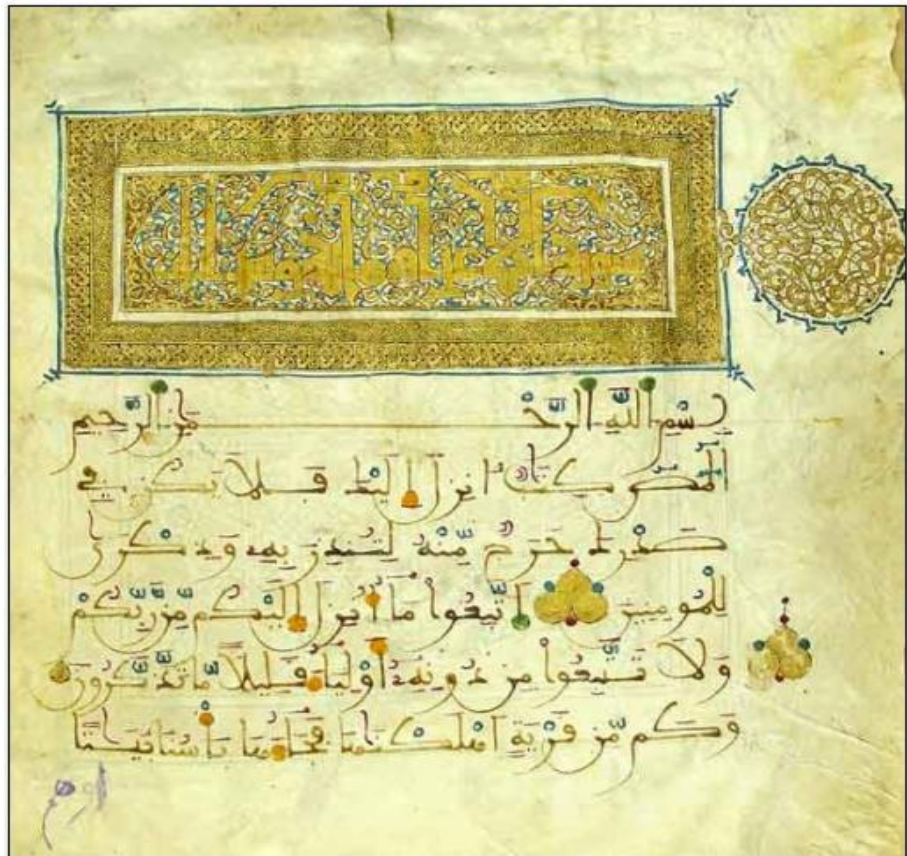 بِسْمِ اللَّهِ الرَّحْمَٰنِ الرَّحِيمِ
الٓمٓصٓ كِتَٰبٌ انزِلَ إِلَيْكَ فَلَا يَكُن فِي
صَدْرِكَ حَرَجٌ مِّنْهُ لِتُنذِرَ بِهِ وَذِكْرَىٰ
لِلْمُومِنِينَ اتَّبِعُواْ مَا أُنزِلَ إِلَيْكُم مِّن رَّبِّكُمْ
وَلَا تَتَّبِعُواْ مِن دُونِهِ أَوْلِيَاءَ قَلِيلًا مَّا تَذَّكَّرُونَ
وَكَم مِّن قَرْيَةٍ اهْلَكْنَٰهَا فَجَاءَهَا بَأْسُنَا بَيَٰتًا